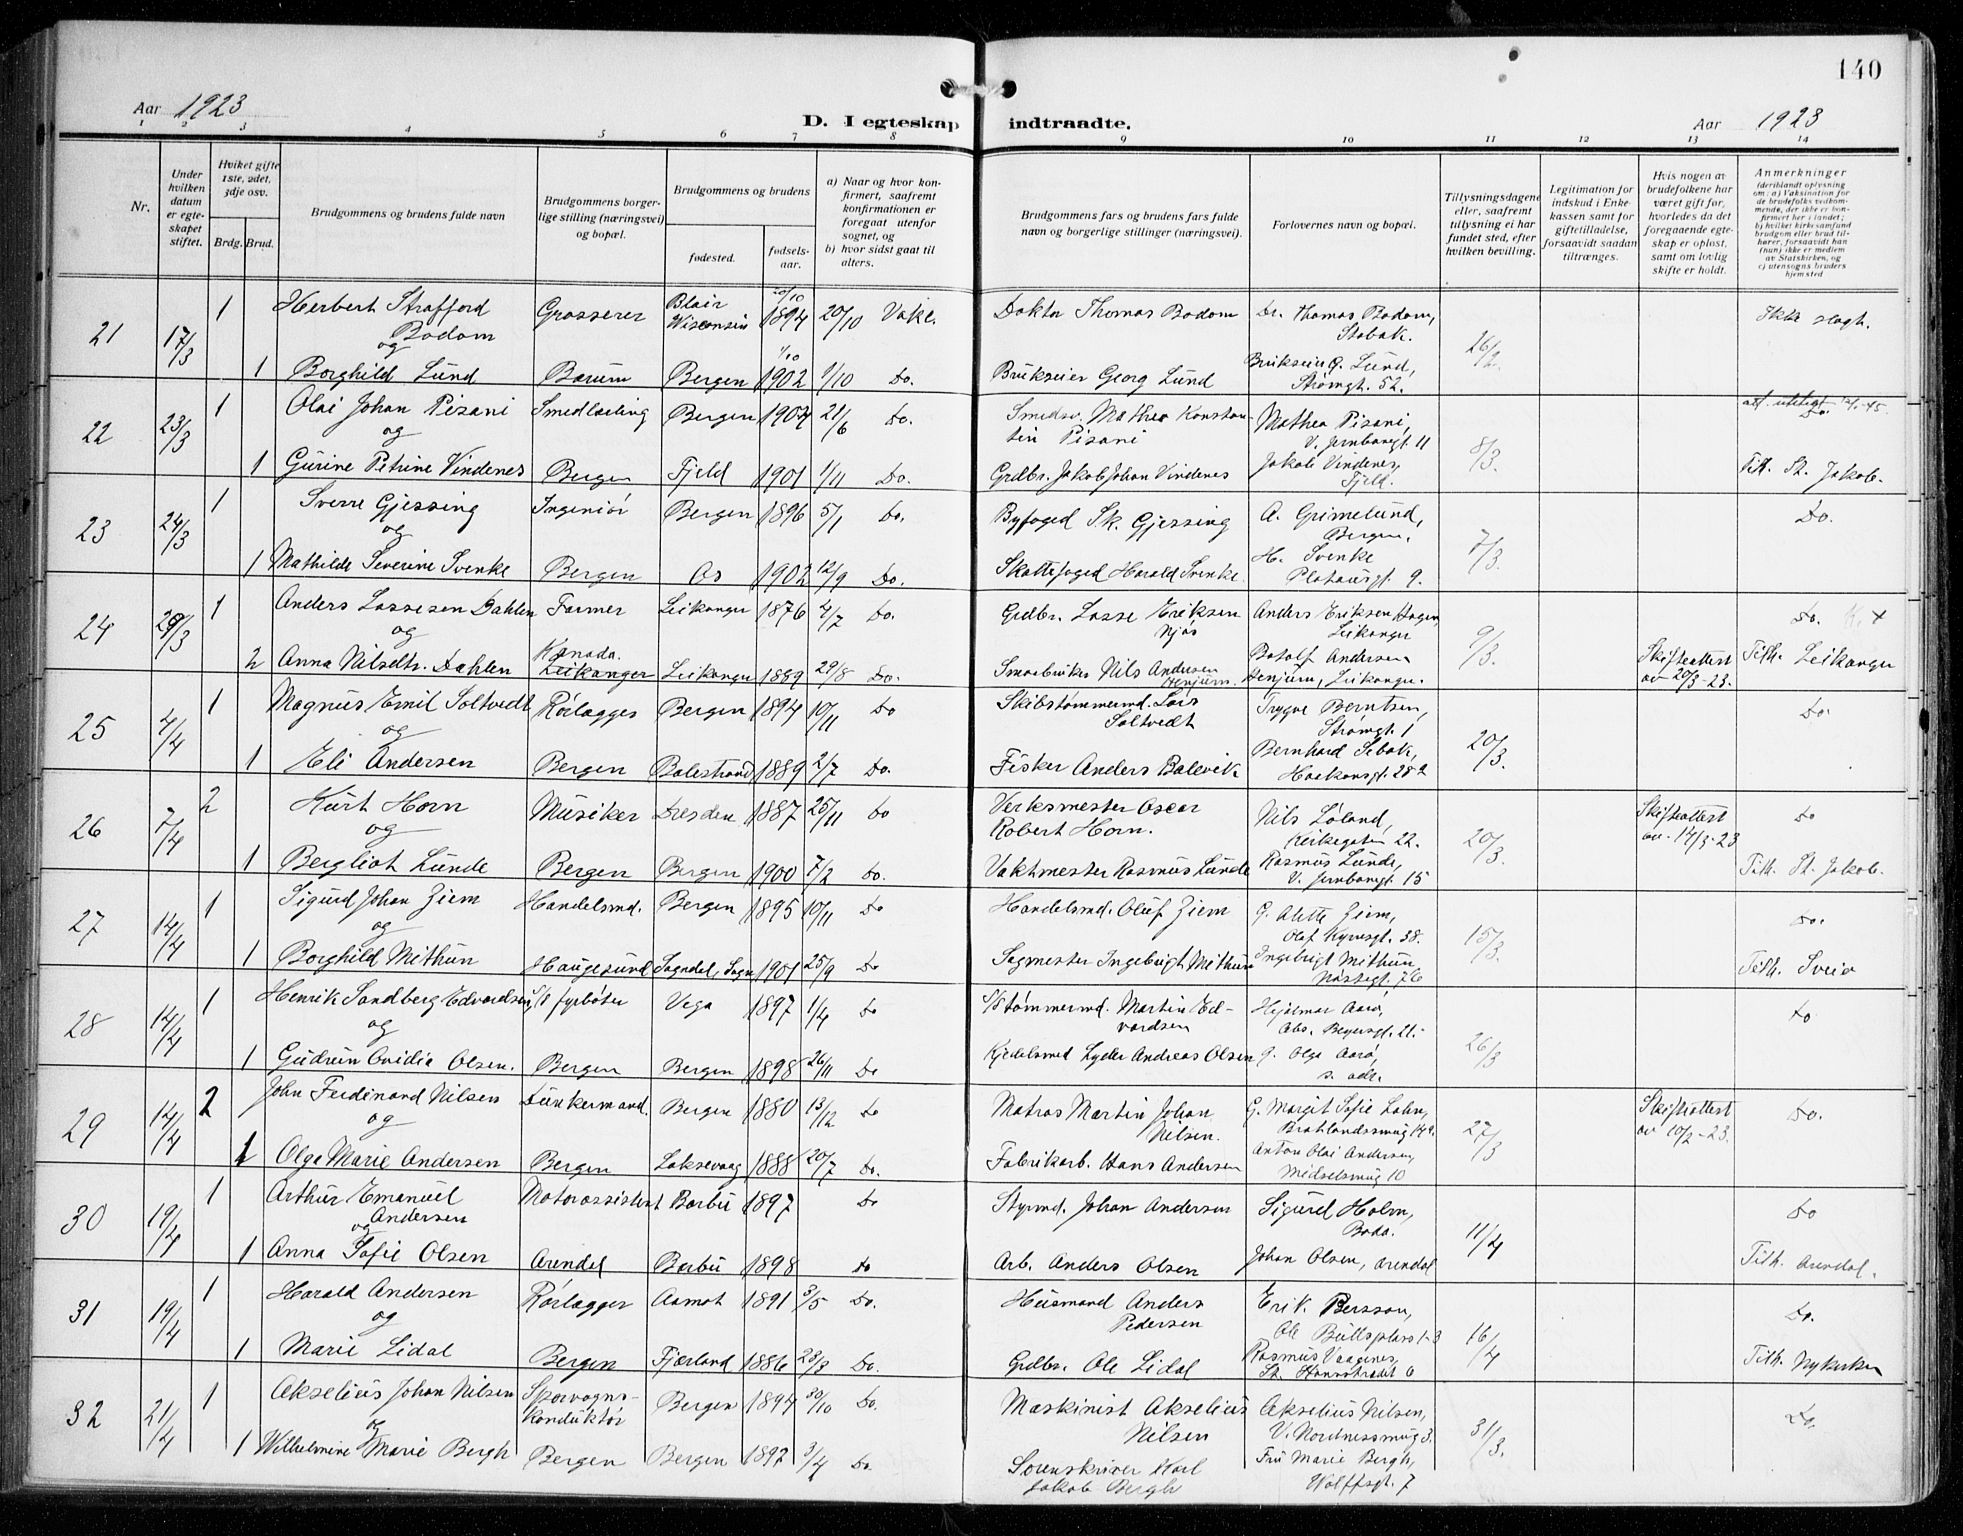 140
Aar 1923
D. I egteskap indtraadte.
Aar 1923
1 2 3 4 5 6 7 8 9 10 11 12 13 14
Nr.
Under hvilken datum er egteskapet stiftet.
Hvilket gifte 1ste, 2det, 3dje osv.
Brdg. Brud.
Brudgommens og brudens fulde navn
Brudgommens borgerlige stilling (næringsvei) og bopæl.
Brudgommens og brudens
fødested.
fødselsaar.
a) Naar og hvor konfirmert, saafremt konfirmationen er foregaat utenfor sognet, og
b) hvor sidst gaat til alters.
Brudgommens fars og brudens fars fulde navn og borgerlige stillinger (næringsvei).
Forlovernes navn og bopæl.
Tillysningsdagene eller, saafremt tillysning ei har fundet sted, efter hvilken bevilling.
Legitimation for indskud i Enkekassen samt for giftetilladelse, forsaavidt saadan tiltrænges.
Hvis nogen av brudefolkene har været gift før, hvorledes da det foregaaende egteskap er opløst, samt om lovlig skifte er holdt.
Anmerkninger
(deriblandt oplysning om: a) Vaksination for de brudefolks vedkommende, der ikke er konfirmert her i landet; b) hvilket kirkesamfund brudgom eller brud tilhører, forsaavidt han (hun) ikke er medlem av Statskirken, og c) utensogns bruders hjemsted
21 17/3 1 Herbert Strafford Bodom Grosserer Blair Wisconsin 20/10 1894 20/10 Vake. Doktor Thomas Bodom Dr. Thomas Bodom, Stabak. 16/2 Ikke slegt.
og
1 Borghild Lund Bærum Bergen 1/10 1902 1/10 Do. Brukseier Georg Lund Brukseier G. Lund, Strømgt. 52.
22 23/3 1 Olai Johan Pisani Smedlærling Bergen 1904 21/6 Do. Smedsv. Mathea Konstantin Pisani Mathea Pisani, V. Jernbanegt. 11 8/3. Do.
og
1 Gurine Petrine Vindenes Bergen Fjeld 1901 1/11 Do. Grdbr. Jakob Johan Vindenes Jakob Vindenes, Fjeld. Tilh. St. Jakob.
23 24/3 1 Sverre Gjessing Ingeniør Bergen 1896 5/1 Do. Byfoged Sk. Gjessing A. Grimelund, Bergen. 7/3. Do.
og
1 Mathilde Severine Svenke Bergen Os 1902 12/9 Do. Skattefoged Harald Svenke H. Svenke Platousgt. 9.
24 28/3 1 Anders Lassesen Dahlen Farmer Leikanger 1876 4/7 Do. Grdbr. Lasse Eriksen Njøs Anders Eriksen Hagen, Leikanger 9/3. Do.
og
2 Anna Nilsdtr. Dahlen Kanada. Leikanger Leikanger 1889 29/8 Do. Smaabruker Nils Andersen Henjum. Botolf Andersen Henjum, Leikanger. Skifteattest av 20/3-23. Tilh. Leikanger
25 4/4 1 Magnus Emil Soltvedt Rørlægger Bergen 1894 10/11 Do Skibstømmermd. Lars Soltvedt Trygve Berntsen, Strømgt. 1 20/3. Do.
og
1 Eli Andersen Bergen Balestrand 1889 2/7 Do. Fisker Anders Balevik Bernhard Sebak, Haakonsgt. 28 2
26 7/4 2 Kurt Horn Musiker Dresden 1887 25/11 Do Verksmester Oscar Robert Horn. Nils Løland, Kirkegaten 22. 20/3. Skifteattest av 14/3-23 Do
og
1 Bergliot Lunde Bergen Bergen 1900 7/2 Do. Vaktmester Rasmus Lunde Rasmus Lunde, V. Jernbanegt. 15 Tilh. St. Jakob.
27 14/4 1 Sigurd Johan Ziem Handelsmd. Bergen 1895 10/11 Do Handelsmd. Oluf Ziem G. Alette Ziem, Olaf Kyrresgt. 38. 15/3. Do.
og
1 Borghild Mithun Haugesund Sogndal, Sogn 1901 25/9 Do Sagmester Ingebrigt Mithun Ingebrigt Mithun, Nøstegt. 76 Tilh. Sveio
28 14/4 1 Henrik Sandberg Edvardsen S/S fyrbøter Vega 1897 1/4 Do S/S tømmermd. Martin Edvardsen Hjalmar Aarø, Abs. Beyersgt. 21. 26/3 Do
og
1 Gudrun Ovidia Olsen. Bergen Bergen 1898 26/11 Do Kjedelsmed Lyder Andreas Olsen G. Olga Aarø, s. adr.
29 14/4 2 John Ferdinand Nilsen Dunkermand. Bergen 1880 13/12 Do Matros Martin Johan Nilsen. G. Margit Sofie Lohn, 27/3 Skifteattest av 10/2-23. Do.
og
1 Olga Marie Andersen Bergen Laksevaag 1888 20/7 Do. Fabrikarb. Hans Andersen Anton Olai Andersen, 10
30 19/4 1 Arthur Emanuel Andersen Motorassistent Barbu 1897 Do Styrmd. Johan Andersen Sigurd Holm, Bodø. 11/4 Do
og
1 Anna Sofie Olsen Arendal Barbu 1898 Do Arb. Anders Olsen Johan Olsen, Arendal Tilh. Arendal.
31 19/4 1 Harald Andersen Rørlægger Aamot 1891 3/5 Do. Husmand Anders Pedersen Erik Bersson, Ole Bullsplass 1-3 16/4 Do.
og
1 Marie Lidal Bergen Fjærland 1886 28/8 Do. Grdbr. Ole Lidal Rasmus Vaagenes, St. Hansstrædet 6 Tilh. Nykirken
32 21/4 1 Akselius Johan Nilsen Sporvogns-konduktør Bergen 1894 30/10 Do. Maskinist Akselius Nilsen Akselius Nilsen, V. Nordnessmug 3. 31/3. Do.
og
1 Wilhelmine Marie Bergh Bergen Bergen 1892 3/4 Do. Sorenskriver Karl Jakob Bergh Fru Marie Bergh, Wolffsgt. 7